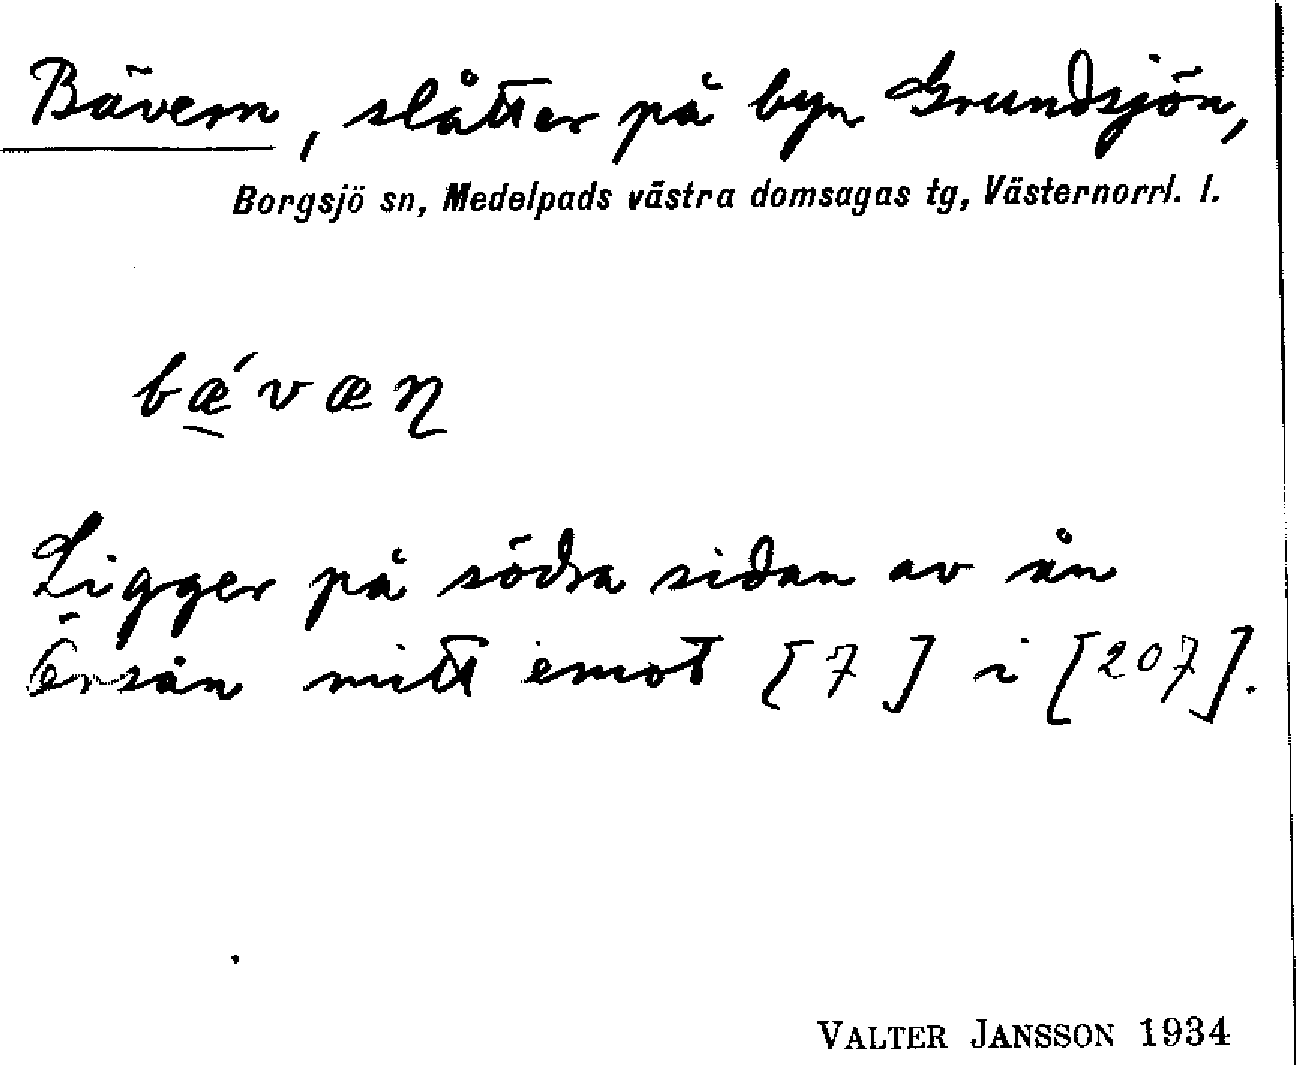 Bävern, slåtter på byn Grundsjön,
Borgsjö sn, Medelpads västra domsagas tg, Västernorrl. l.
bǽvæn̥
Ligger på södra sidan av ån
Örsån mitt emot [7] i [207].
VALTER JANSSON 1934